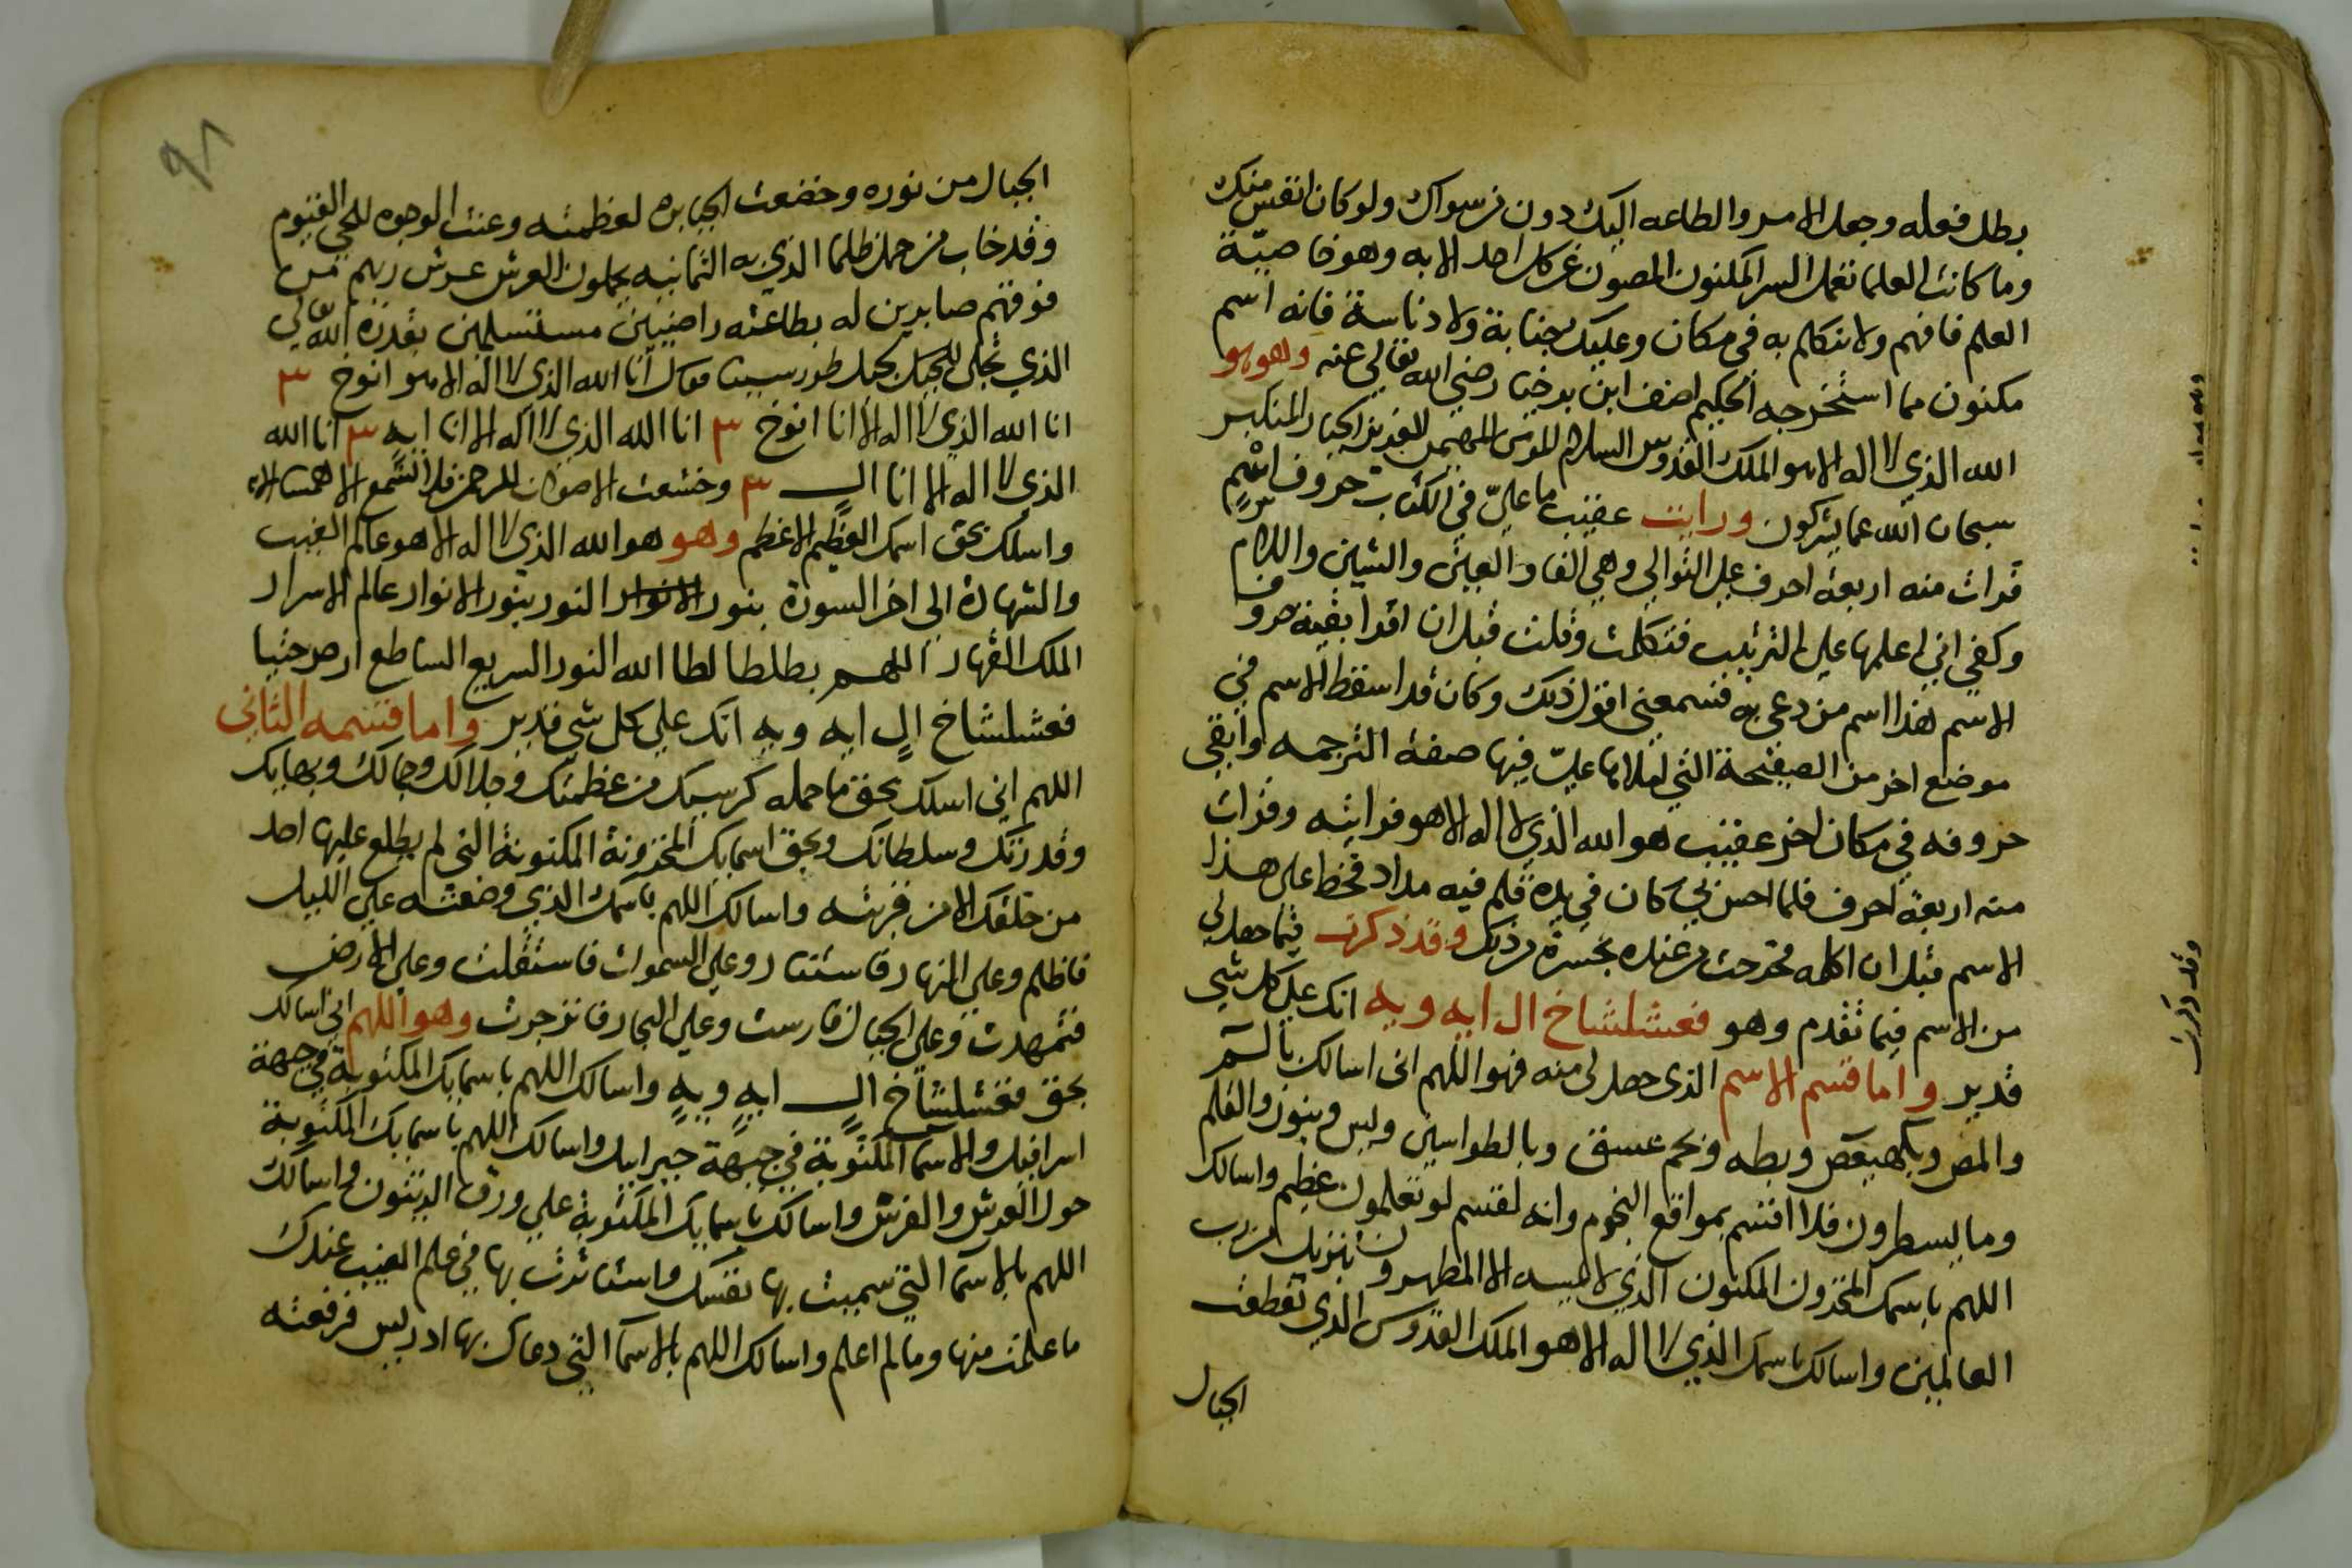 بطل فعله وجعل الامر والطاعه اليك دون من سواك ولو كان انفس منك
وما كانت العلما تعمل السر المكنون المصون عن كل احد الا به وهو خاصية
العلم فافهم ولا تتكلم به فى مكان وعليك بجنابة ولا دناسة فانه اسم
مكنون مما استخرجه الحكيم اصف ابن برخيا رضي الله تعالى عنه وهو هو
الله الذي لا اله الا هو الملك القدوس السلام المومن المهيمن العزيز الجبار المتكبر
سبحان الله عما يشركون ورايت عقيب ما علي في الكتاب حروف اسم
قرات منه اربعة احرف على التوالي وهي الفا والعين والشين واللام
وكفي اني اعلمها على الترتيب فتكلمت وقلت قبل ان اقرا بقية حروف
الاسم هذا اسم من دعى به فسمعني اقول ذلك وكان قد اسقط الاسم في
موضع اخر من الصفيحة التي فيها صفة الترجمه وابقى
حروفه في مكان اخر عقيب هو الله الذي لا اله الا هو فرايته وقرات
منه اربعة احرف فلما احس بي كان في يده قلم فيه مداد فخط على هذا
الاسم قبل ان اكمله فخرجت من عنده بحسرة من ذلك وقد ذكرت فيما حصل لي
من الاسم فيما تقدم وهو فعشلشاخ ال ايه ويه انك على كل شي
قدير واما قسم الاسم الذى حصل لى منه فهو اللهم انى اسالك بالم
والمص وبكهيعص وبطه وبحم عسق وبالطواسين ويس وبنون والقلم
وما يسطرون فلا اقسم بمواقع النجوم وانه لقسم لو تعلمون عظيم واسالك
اللهم باسمك المخزون المكنون الذي لا يمسه الا المطهرون تنزيل من رب
العالمين واسالك باسمك الذي لا اله الا هو الملك القدوس الذي تقطعت
الجبال
وقد ذكرت
٩٨
الجبال من نوره وخضعت الجبابره لعظمته وعنت الوجوه للحي القيوم
وقد خاب من حمل ظلما الذي به الثمانيه يحملون العرش عرش ربهم من
فوقهم صابرين له بطاعته راضيين مستسلمين بقدرة الله تعالى
الذي تجلى للجبل بجبل طور سينا فقال انا الله الذي لا اله الا هو انوخ ٣
انا الله الذي لا اله الا انا انوخ ٣ انا الله الذي لا اله الا انا ايه ٣ انا الله
الذي لا اله الا انا ال ٣ وخشعت الاصوات للرحمن فلا تسمع الا همسا
واسلك بحق اسمك العظيم الاعظم وهو هو الله الذي لا اله الا هو عالم الغيب
والشهادة الى اخر السورة بنور الانوار النور بنور الانوار عالم الاسرار
الملك القهار اللهم بطلطا لطا الله النور السريع الساطع ارص حثيا
فعشلشاخ ال ايه ويه انك على كل شي قدير واما قسمه الثانى
اللهم اني اسلك بحق ما حمله كرسيك من عظمتك وجلالك وجمالك وبهايك
وقدرتك وسلطانك وبحق اسمايك المخزونة المكنونة التي لم يطلع عليها احد
من خلقك الا من قربته واسالك اللهم باسمك الذي وضعته على الليل
فاظلم وعلى النهار فاستنار وعلى السموات فاستقلت وعلى الارض
فتمهدت وعلى الجبال فارست وعلى البحار فانفجرت وهو اللهم اني اسالك
بحق فعشلشاخ ال ايه ويه واسالك اللهم باسمايك المكتوبة في جبهة
اسرافيل والاسما المكتوبة في جبهة جبراييل واسالك اللهم باسمايك المكتوبة
حول العرش والفرش واسالك باسمايك المكتوبة على ورق الزيتون واسالك
اللهم بالاسما التي سميت بها نفسك واستاثرت بها في علم الغيب عندك
ما علمت منها وما لم اعلم واسالك اللهم بالاسما التي دعاك بها ادريس فرفعته